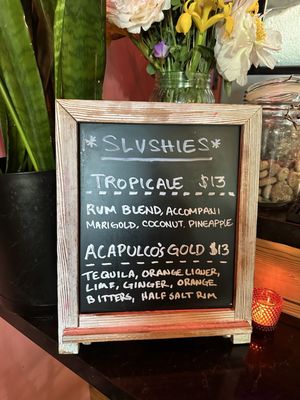 *SLUSHIES*
TROPICALE $13
RUM BLEND, ACCOMPANI
MARIGOLD, COCONUT, PINEAPPLE
ACAPULCO'S GOLD $13
TEQUILA, ORANGE LIQUER,
LIME, GINGER, ORANGE
BITTERS, HALF SALT RIM